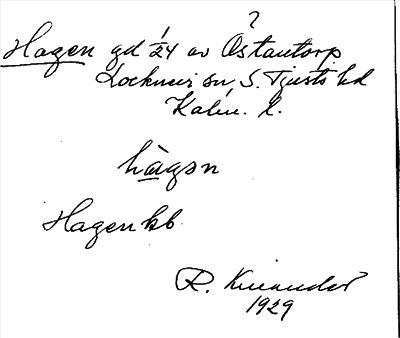 ?
Hagen gd 1/24 av Östantorp
Locknevi sn, S. Tjusts hd
Kalm. l.
hàgən
Hagen kb
R. Kinander
1929